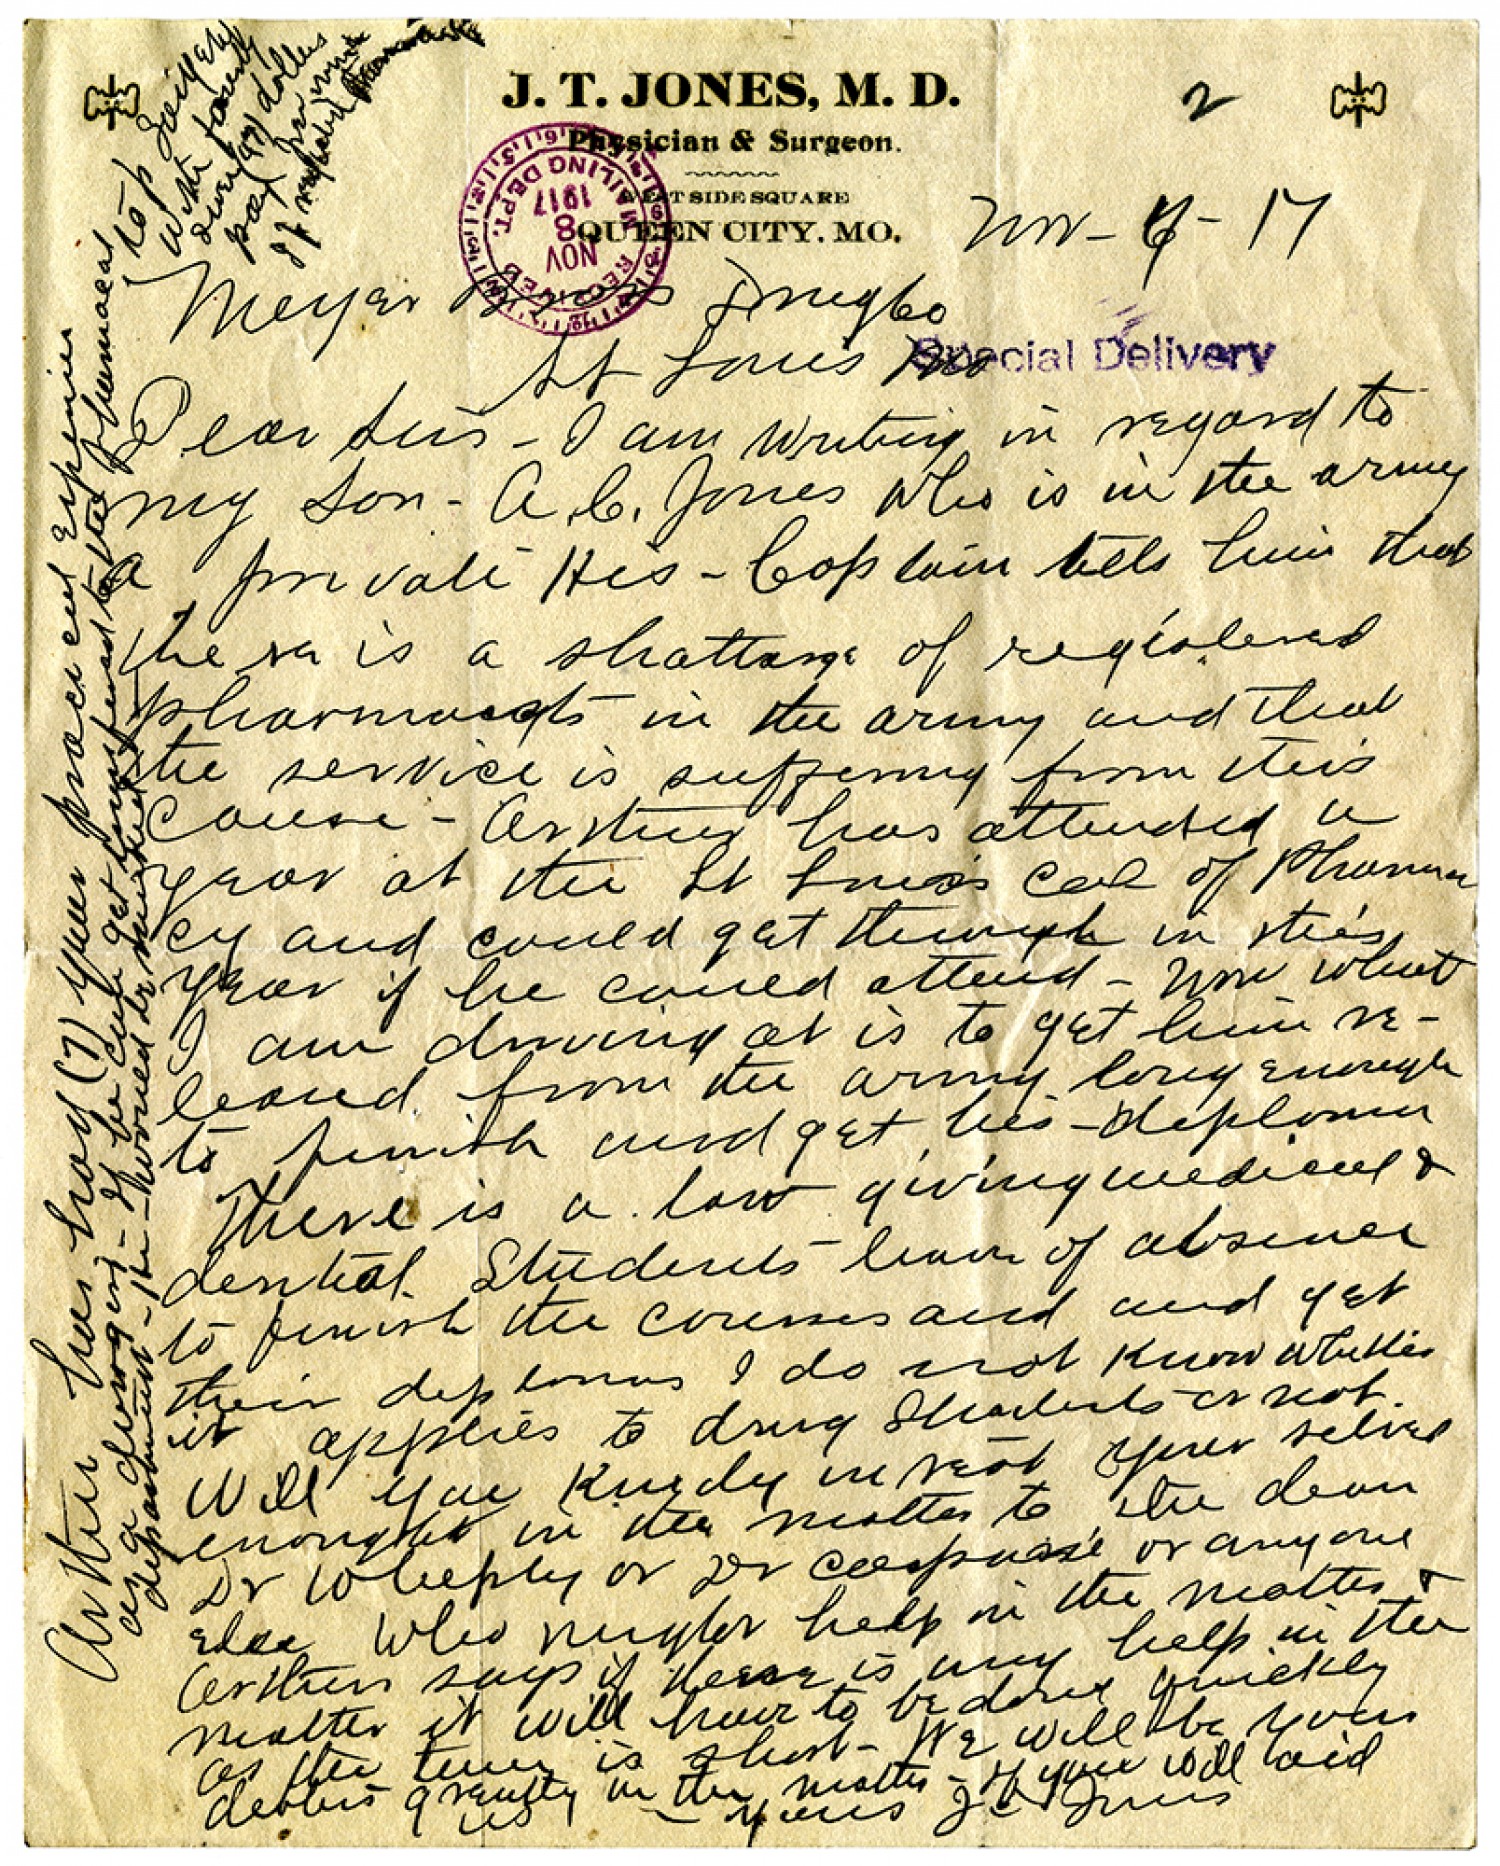 J. T. JONES, M. D.
2
Physician & Surgeon.
WEST SIDE SQUARE
QUEEN CITY. MO.
Nov - 6 - 17
RECEIVED
NOV
8
1917
MAILING DEPT.
Meyer Bros Drug Co
St Louis Mo
Special Delivery
Dear Sirs - I am writing in regard to
my son - A. C. Jones who is in the army
a private His - Captain tells him that
there is a shattarge of registered
pharmacists in the army and that
the service is suffering from this
cause - Arthur has attended a
year at the St Louis Col of Pharma
cy and could get through in this
year if he could attend - Now what
I am driving at is to get him re-
leased from the army long enough
to finish and get his - diploma
There is a law giving medical &
dental students leave of absence
to finish the courses and and get
their diplomas I do not know whether
it applies to drug students or not.
Will you kindly interest your selves
enought in the matter to the dean
Dr Whelpley or Dr or anyone
else who might help in the matter &
Arthur says if there is any help in the
matter it will have to be done quickly
as the time is short - We will be your
debtors greatly in the matter - If you will aid
us - Yours J. T. Jones
Arthur has had (7) years practical experience
as a druggist - If he can get transferred to the pharmacal
department - he would be
to
with
dollers
pay for wire
If